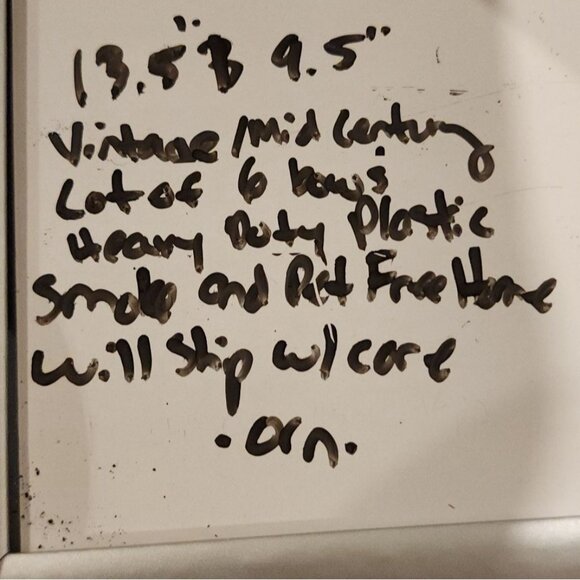 13.5" B 9.5"
Vintage/mid century
Lot of 6 bowls
Heavy Duty Plastic
Smoke and Pet Free Home
Will Ship w/care
.orn.